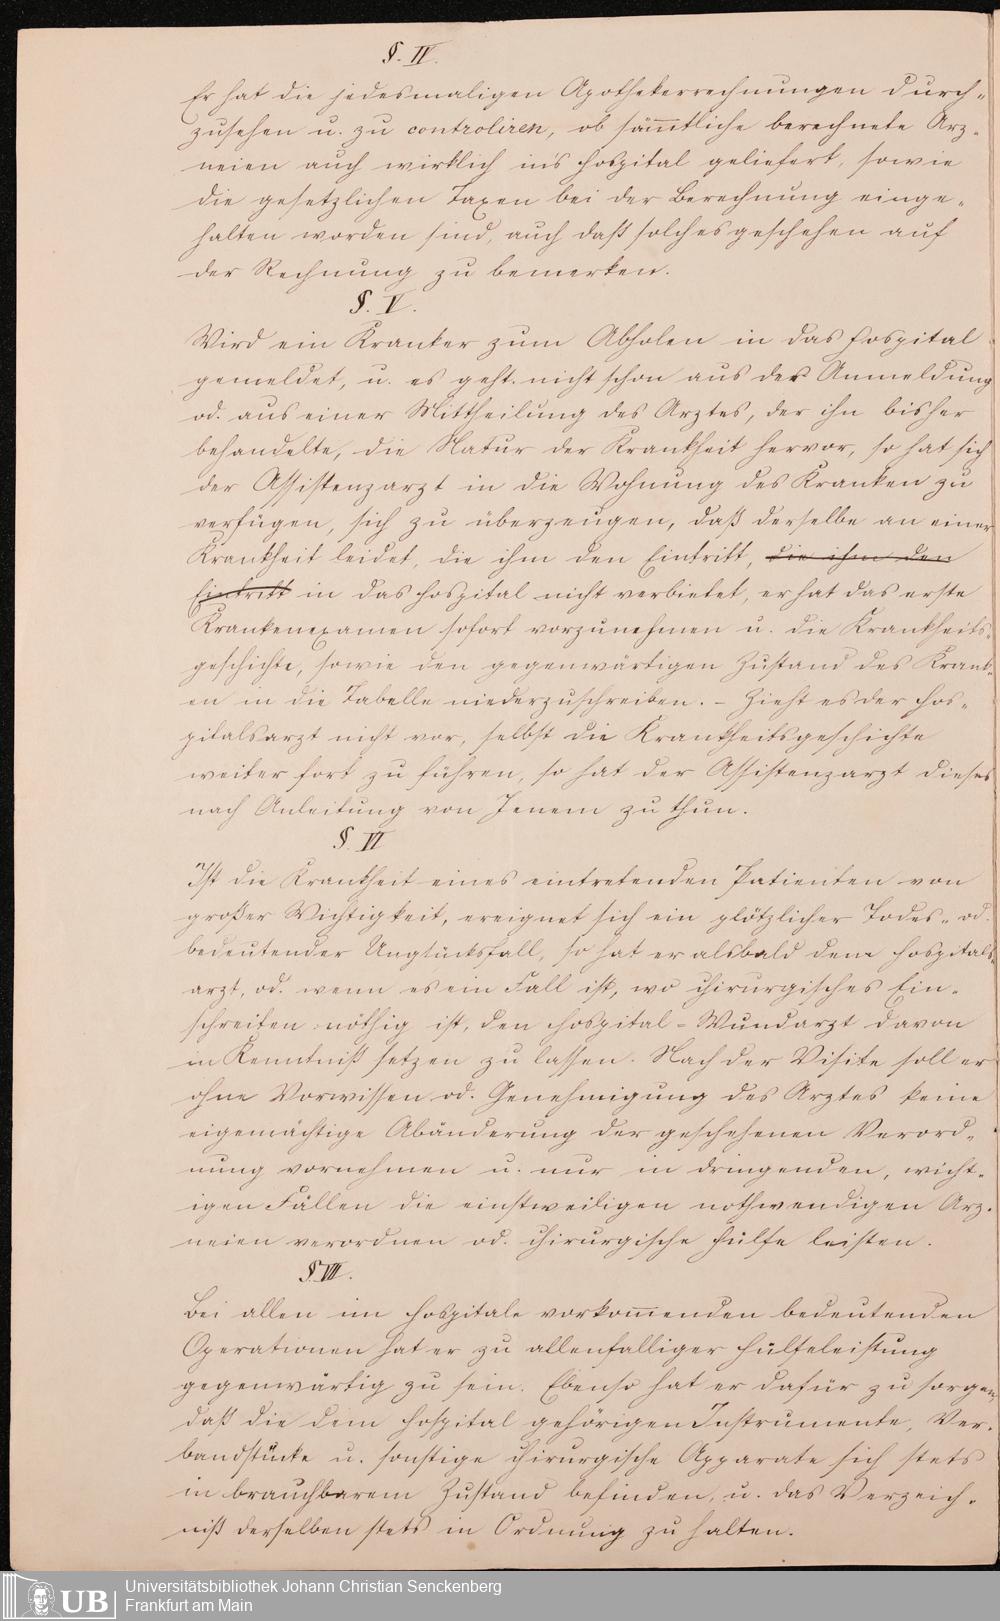 §. IV.
Er hat die jedesmaligen Apothekerrechnungen durch-
zusehen u. zu controliren, ob säm̄tliche berechnete Arz-
neien auch wirklich in's Hospital geliefert, sowie
die gesetzlichen Taxen bei der Berechnung einge-
halten worden sind, auch daß solches geschehen auf
der Rechnung zu bemerken.
§. V.
Wird ein Kranker zum Abholen in das Hospital
gemeldet, u. es geht nicht schon aus der Anmeldung
od. aus einer Mittheilung des Arztes, der ihn bisher
behandelte, die Natur der Krankheit hervor, so hat sich
der Assistenzarzt in die Wohnung des Kranken zu
verfügen, sich zu überzeugen, daß derselbe an einer
Krankheit leidet, die ihm den Eintritt, die ihm den
Eintritt in das Hospital nicht verbietet, er hat das erste
Krankenexamen sofort vorzunehmen u. die Krankheits-
geschichte, sowie den gegenwärtigen Zustand des Krank-
en in die Tabelle niederzuschreiben. – Zieht es der Hos-
pitalsarzt nicht vor, selbst die Krankheitsgeschichte
weiter fort zu führen, so hat der Assistenzarzt dieses
nach Anleitung von Jenem zu thun.
§. VI
Ist die Krankheit eines eintretenden Patienten von
großer Wichtigkeit, ereignet sich ein plötzlicher Todes- od.
bedeutender Unglücksfall, so hat er alsbald dem Hospitals-
arzt, od. wenn es ein Fall ist, wo chirurgisches Ein-
schreiten nöthig ist, den Hospital-Wundarzt davon
in Kenntniß setzen zu lassen. Nach der Visite soll er
ohne Vorwissen od. Genehmigung des Arztes keine
eigemächtige Abänderung der geschehenen Verord-
nung vornehmen u. nur in dringenden, wicht-
igen Fällen die einstweiligen nothwendigen Arz-
neien verordnen od. chirurgische Hülfe leisten.
§. VII.
Bei allen im Hospitale vorkom̄enden bedeutenden
Operationen hat er zu allenfalliger Hülfeleistung
gegenwärtig zu sein. Ebenso hat er dafür zu sorgen,
daß die dem Hospital gehörigen Instrumente, Ver-
bandstücke u. sonstige chirurgische Apparate sich stets
in brauchbarem Zustand befinden, u. das Verzeich-
niß derselben stets in Ordnung zu halten.
UB
Universitätsbibliothek Johann Christian Senckenberg
Frankfurt am Main